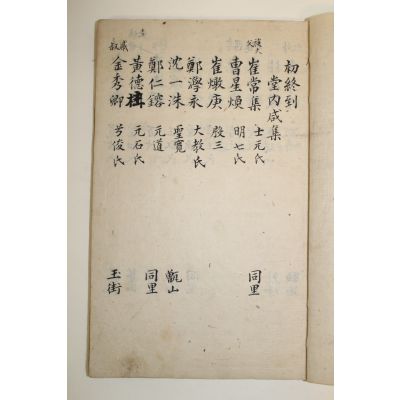 初終到
堂內咸集
族大父 崔常集 士元氏 同里
曹星煥 明七氏
崔燉庚 殷三
鄭澤永 大教氏
沈一洙 聖寬 甑山
鄭仁鎔 元道 同里
黃德 元石氏
戚叔 金秀卿 芳俊氏 玉街